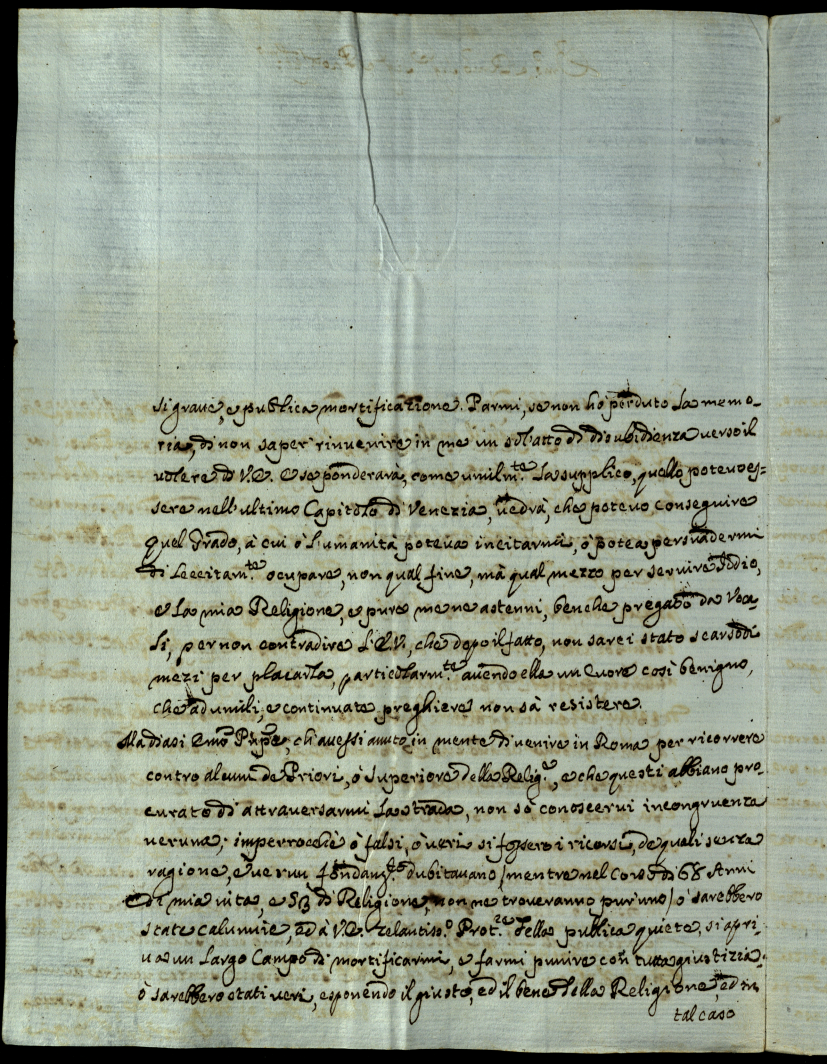 si graue, e publica mortificazione. Parmi, se non hò perduto la memo-
ria, di non saper rinuenire in me un sol atto di disubidienza uerso il
uolere di V.E. E se ponderarà, come umilm.te La supplico, quello poteuo es=
sere nell'ultimo Capitolo di Venezia, uedrà, che poteuo conseguire
quel Grado, à cui ò l'umanità poteua incitarmi, ò potea persuadermi
di Lecitam.te ocupare, non qual fine, mà qual mezzo per seruire Iddio,
e La mia Religione, e pure me ne astenni, benche pregato da
li, per non contradire l'E.V., che dopo il fatto, non sarei stato scarso di
mezi per placarla, particolarm.te auendo ella un Cuore così benigno,
che ad umili, e continuate preghiere non sà resistere.
Ma diasi Emo Pnpe, ch'auessi auuto in mente di uenire in Roma per ricorrere
contro alcuni de Priori, ò Superiore della Relig.e, e che questi abbiano pro-
curato di attrauersarmi La strada, non sò conoscerui incongruenza
ueruna; imperrocchè ò falsi, ò ueri si fossero i ricorsi, de quali senza
ragione, e uerun fondam.to dubitauano / mentre nel Corso di 68 Anni
di mia uita, e 53 di Religione, non ne troueranno pur'uno / ò sarebbero
state calunnie, ed à V.E. zelantiss.o Prot.re della publica quiete, si apri
ua un Largo Campo di mortificarmi, e farmi punire con tutta giustizia.
ò sarebbero stati ueri, esponendo il giusto, ed il bene della Religione, ed in
tal caso